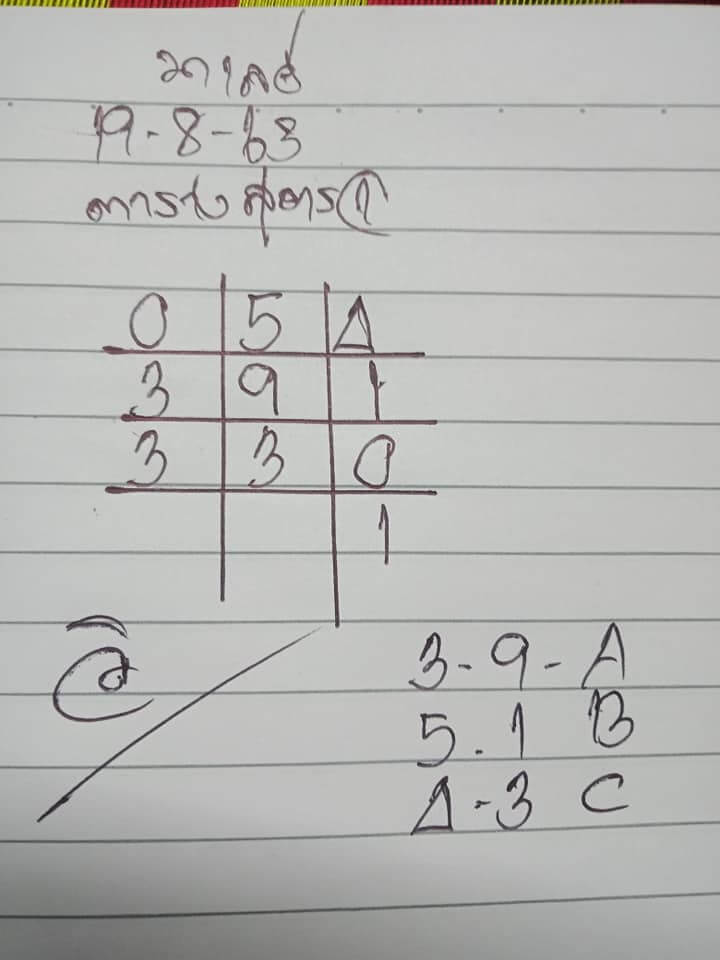 มาเลย์
19-8-63
ตารางสูตร 1
0 5 Δ
3 9 1
3 3 0
1
3-9-A
5.1 B
Δ-3 C